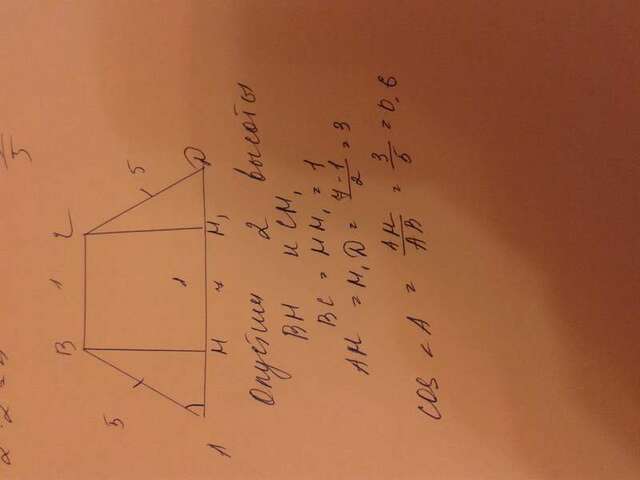 B 1 C
5 5
1
A H 7 H₁ D
Опустим 2 высоты
BH и CH₁
BC = HH₁ = 1
AH = H₁D = 7-1/2 = 3
cos < A = AH/AB = 3/5 = 0,6